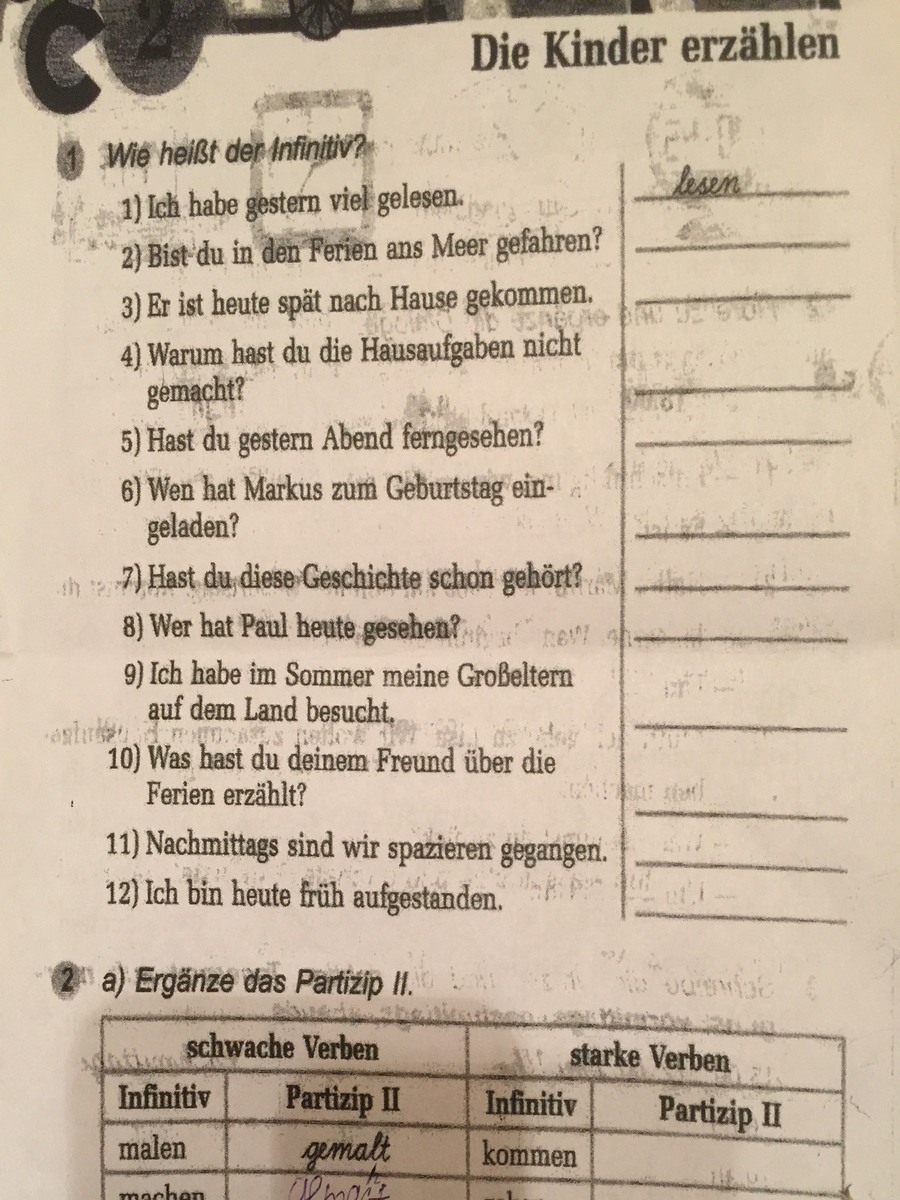 C 2
Die Kinder erzählen
1 Wie heißt der Infinitiv?
1) Ich habe gestern viel gelesen. lesen
2) Bist du in den Ferien ans Meer gefahren?
3) Er ist heute spät nach Hause gekommen.
4) Warum hast du die Hausaufgaben nicht
gemacht?
5) Hast du gestern Abend ferngesehen?
6) Wen hat Markus zum Geburtstag ein-
geladen?
7) Hast du diese Geschichte schon gehört?
8) Wer hat Paul heute gesehen?
9) Ich habe im Sommer meine Großeltern
auf dem Land besucht.
10) Was hast du deinem Freund über die
Ferien erzählt?
11) Nachmittags sind wir spazieren gegangen.
12) Ich bin heute früh aufgestanden.
2 a) Ergänze das Partizip II.
schwache Verben starke Verben
Infinitiv Partizip II Infinitiv Partizip II
malen gemalt kommen
machen